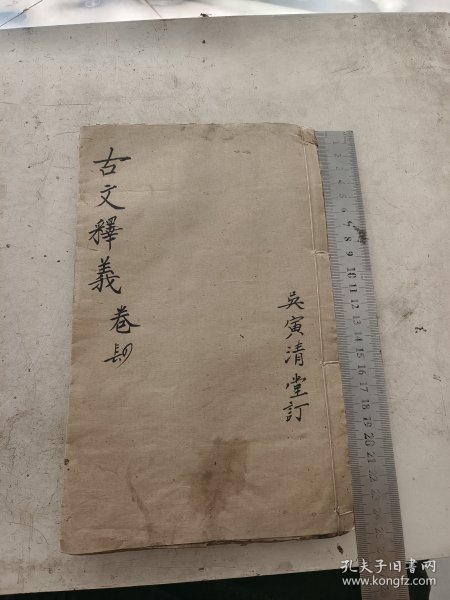 古文釋義 卷
吳寅清堂訂
1 2 3 4 5 6 7 8 9 10 11 12 13 14 15 16 17 18 19 20 21 22 23 24
孔夫子旧书网
www.kongfz.com